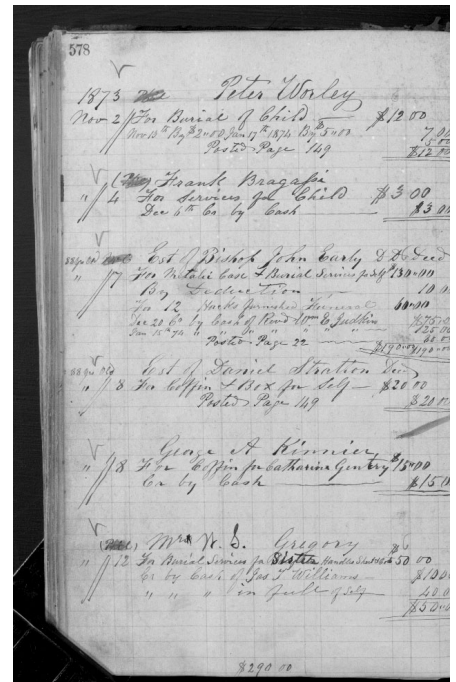 578
1873 Peter Worley
Nov 2 For Burial of Child $12 00
Nov 13th By $2"00 Jan 17th 1874 By $5"00 7 00
5 00
Posted Page 149 $12 00
Frank Bragassi
" 4 For Services for Child $3 00
Dec 6th Cr by Cash $3 00
88 yrs Old Est of Bishop John Early D.D. Decd
" 7 For Metalic Case & Burial Services for Self $130"00
By Deduction 10.00
For 12 Hacks furnished Funeral 60"00
Dec 20 Cr by Cash of Revd Wm E Judkin
Jan 15th 74 " " " 25 00
" Posted Page 22
$190"00 190"00
88 yrs Old Est of Daniel Stratton Decd
" 8 For Coffin & Box for Self $20.00
Posted Page 149 $20 00
George A Kinnier
" 8 For Coffin for Catharine Gentry $15"00
Cr by Cash $15 0
Mrs W. S. Gregory
" 12 For Burial Services for Sister Handles 50 00
Cr by Cash of Jas T Williams $10 0
" " " in full of Self 40 0
$50 00
$290 00